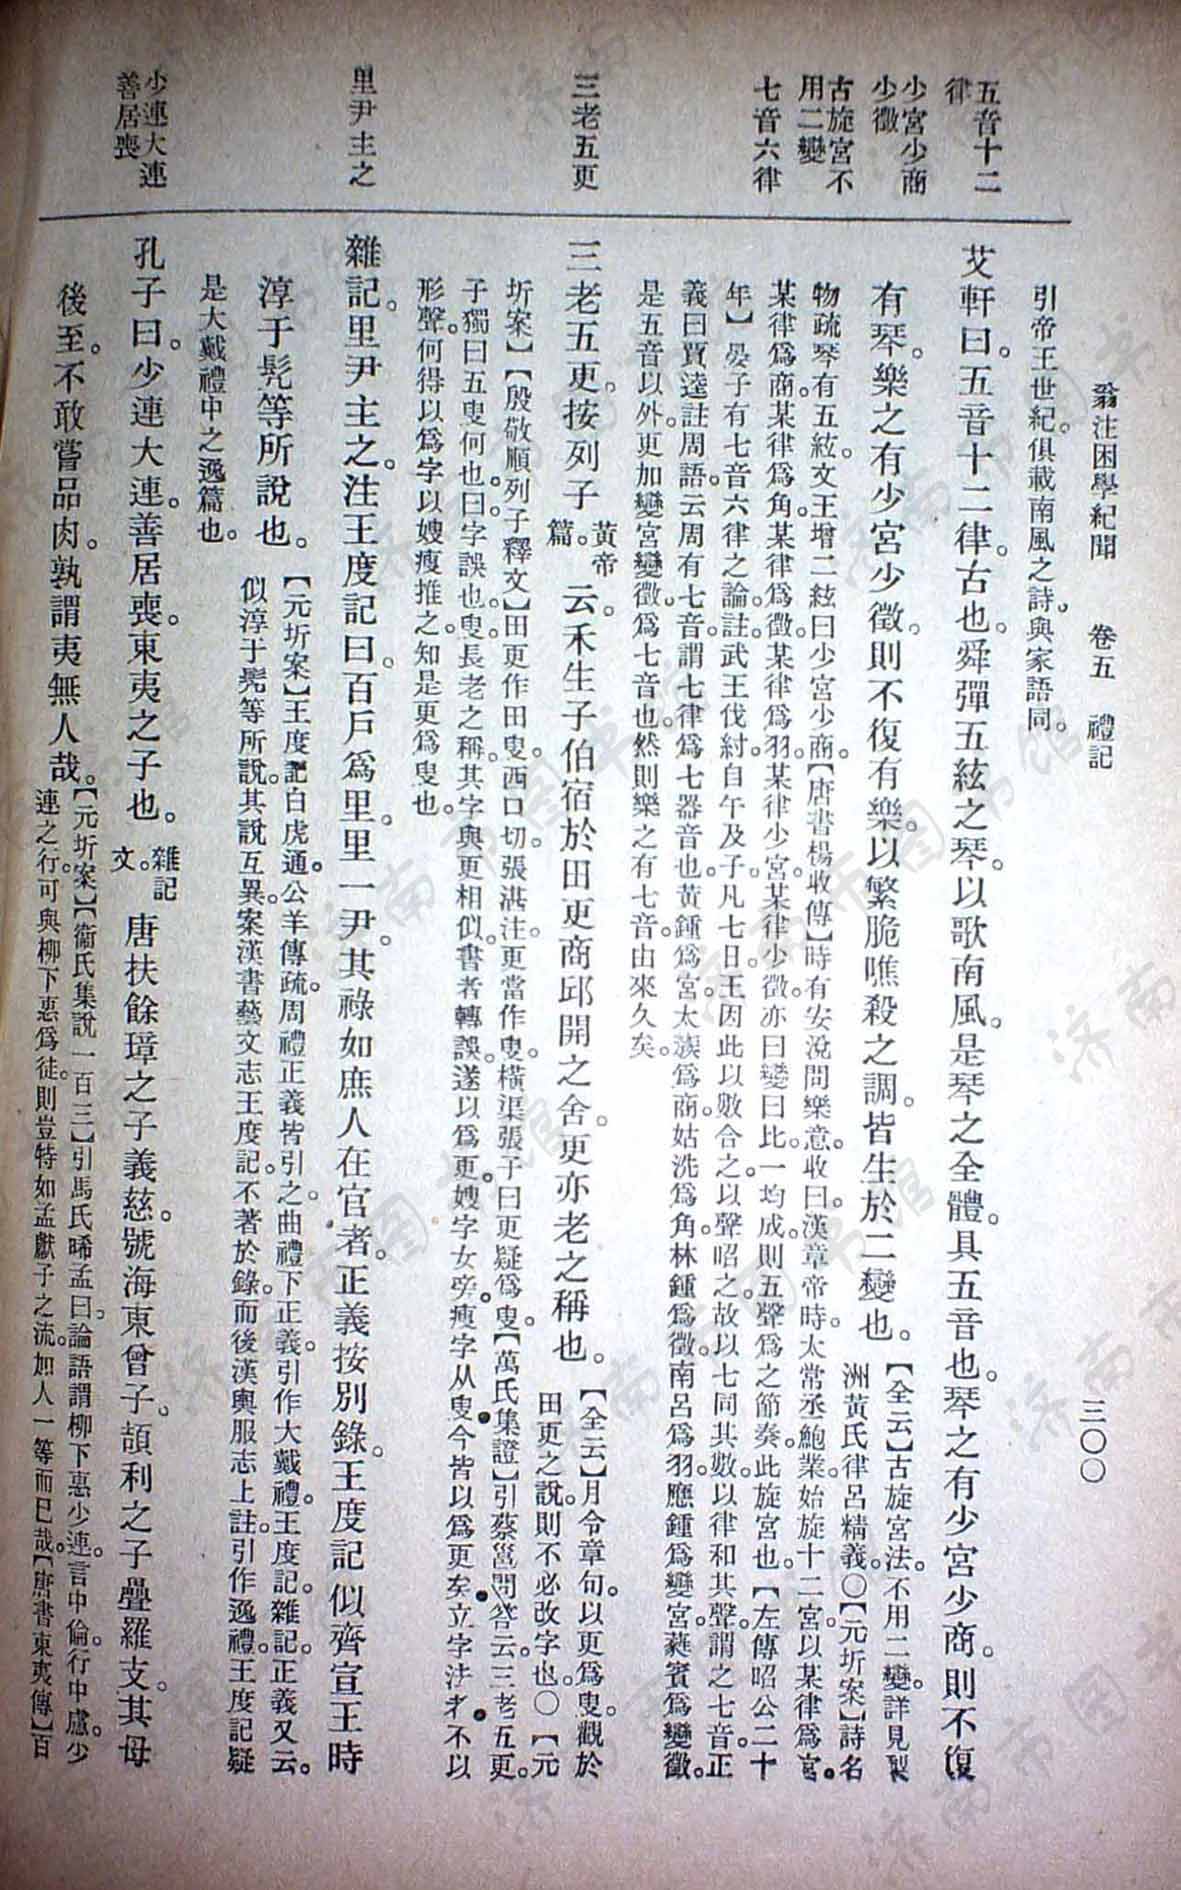 翁注困學紀聞　卷五　禮記　三〇〇
五音十二
律
少宮少商
少徵
古旋宮不
用二變
七音六律
三老五更
里尹主之
少連大連
善居喪
引帝王世紀。俱載南風之詩。與家語同。
艾軒曰。五音十二律。古也。舜彈五絃之琴。以歌南風。是琴之全體。具五音也。琴之有少宮少商。則不復
有琴。樂之有少宮少徵。則不復有樂。以繁脆噍殺之調。皆生於二變也。
【全云】古旋宮法。不用二變。詳見梨
洲黃氏律呂精義。〇【元圻案】詩名
物疏琴有五絃。文王增二絃曰少宮少商。【唐書楊收傳】時有安涗問樂意。收曰。漢章帝時。太常丞鮑業。始旋十二宮。以某律爲宮。
某律爲商。某律爲角。某律爲徵。某律爲羽。某律少宮。某律少徵。亦曰變曰比。一均成。則五聲爲之節奏。此旋宮也。【左傳昭公二十
年】晏子有七音六律之論。註。武王伐紂。自午及子。凡七日。王因此以數合之。以聲昭之。故以七同其數。以律和其聲。謂之七音。正
義曰賈逵註周語。云周有七音。謂七律爲七器音也。黃鍾爲宮。太蔟爲商。姑洗爲角。林鍾爲徵。南呂爲羽。應鍾爲變宮。蕤賓爲變徵。
是五音以外。更加變宮變徵。爲七音也。然則樂之有七音。由來久矣。
三老五更。按列子
黃帝
篇。
云。禾生子伯宿於田更商邱開之舍。更亦老之稱也。
【全云】月令章句。以更爲叟。觀於
田更之說。則不必改字也。〇【元
圻案】【殷敬順列子釋文】田更作田叟。西口切。張湛注。更當作叟。橫渠張子曰。更疑爲叟。【萬氏集證】引蔡邕問答云。三老五更。
子獨曰五叟何也。曰。字誤也。叟。長老之稱。其字與更相似。書者轉誤。遂以爲更。嫂字女旁。瘦字从叟。今皆以爲更矣。立字法者。不以
形聲。何得以爲字。以嫂瘦推之。知是更爲叟也。
雜記。里尹主之。注。王度記曰。百戶爲里。里一尹。其祿如庶人在官者。正義按別錄。王度記似齊宣王時
淳于髡等所說也。
【元圻案】王度記。白虎通。公羊傳疏。周禮正義皆引之。曲禮下正義。引作大戴禮。王度記。雜記。正義又云。
似淳于髡等所說。其說互異。案漢書藝文志王度記。不著於錄。而後漢輿服志上註。引作逸禮。王度記疑
是大戴禮中之逸篇也。
孔子曰。少連大連。善居喪。東夷之子也。
雜記
文。
唐扶餘璋之子義慈。號海東曾子。頡利之子疊羅支。其母
後至。不敢嘗品肉。孰謂夷無人哉。
【元圻案】【衞氏集說一百三】引馬氏晞孟曰。論語謂柳下惠少連。言中倫。行中慮。少
連之行。可與柳下惠爲徒。則豈特如孟獻子之流。加人一等而已哉。【唐書東夷傳】百